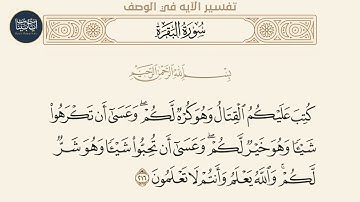 تفسير الآيه في الوصف
سُورَةُ البَقَرَةِ
بِسْمِ اللَّهِ الرَّحْمَٰنِ الرَّحِيمِ
كُتِبَ عَلَيْكُمُ الْقِتَالُ وَهُوَ كُرْهٌ لَّكُمْ ۖ وَعَسَىٰ أَن تَكْرَهُوا
شَيْئًا وَهُوَ خَيْرٌ لَّكُمْ ۖ وَعَسَىٰ أَن تُحِبُّوا شَيْئًا وَهُوَ شَرٌّ
لَّكُمْ ۗ وَاللَّهُ يَعْلَمُ وَأَنتُمْ لَا تَعْلَمُونَ ٢١٦